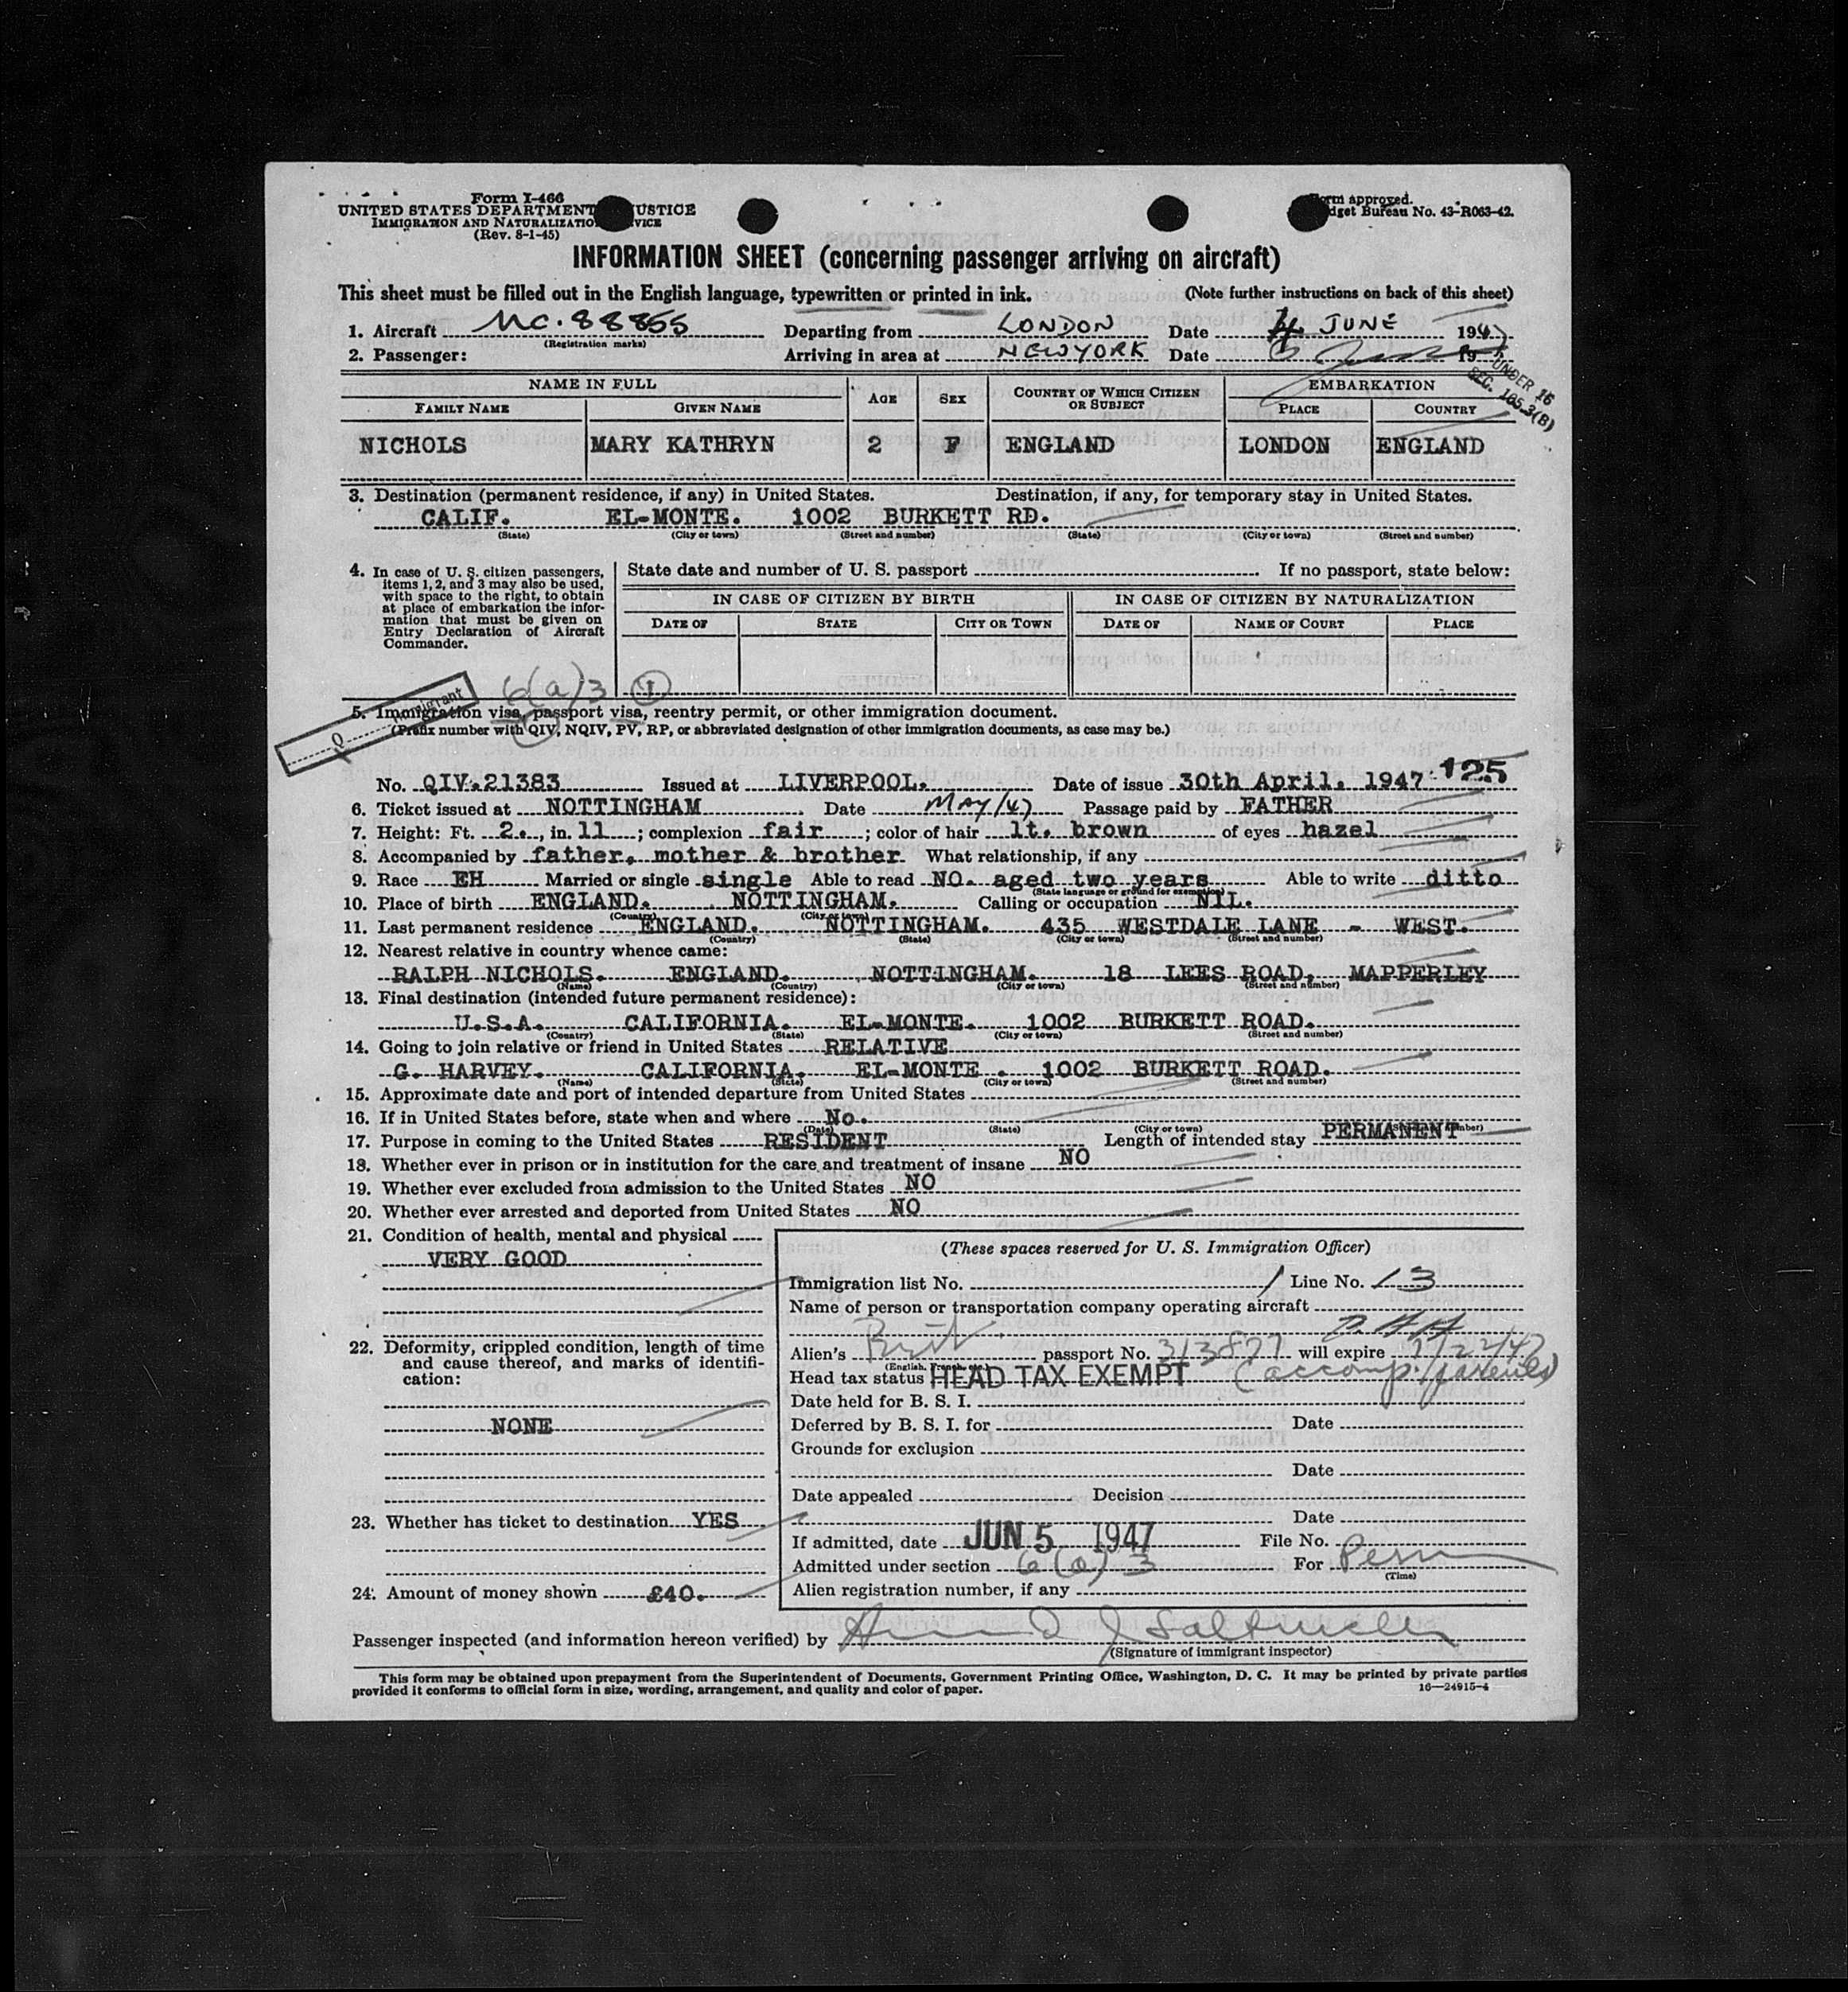 Form I-466
UNITED STATES DEPARTMENT USTICE
IMMIGRATION AND NATURALIZATIO VICE
(Rev. 8-1-45)
Form approved.
dget Bureau No. 43-R063-42.
INFORMATION SHEET (concerning passenger arriving on aircraft)
This sheet must be filled out in the English language, typewritten or printed in ink. (Note further instructions on back of this sheet)
1. Aircraft NC. 88855 Departing from LONDON Date 4 JUNE 1947
(Registration marks)
2. Passenger: Arriving in area at NEW YORK Date 19
UNDER 16
SEC. 165.3(B)
NAME IN FULL AGE SEX COUNTRY OF WHICH CITIZEN OR SUBJECT EMBARKATION
FAMILY NAME GIVEN NAME PLACE COUNTRY
NICHOLS MARY KATHRYN 2 F ENGLAND LONDON ENGLAND
3. Destination (permanent residence, if any) in United States. Destination, if any, for temporary stay in United States.
CALIF. EL-MONTE. 1002 BURKETT RD.
(State) (City or town) (Street and number) (State) (City or town) (Street and number)
4. In case of U. S. citizen passengers, items 1, 2, and 3 may also be used, with space to the right, to obtain at place of embarkation the information that must be given on Entry Declaration of Aircraft Commander.
State date and number of U. S. passport If no passport, state below:
IN CASE OF CITIZEN BY BIRTH IN CASE OF CITIZEN BY NATURALIZATION
DATE OF STATE CITY OR TOWN DATE OF NAME OF COURT PLACE
6(a)3 1
Q Immigrant
5. Immigration visa, passport visa, reentry permit, or other immigration document.
(Prefix number with QIV, NQIV, PV, RP, or abbreviated designation of other immigration documents, as case may be.)
No. QIV.21383 Issued at LIVERPOOL. Date of issue 30th April. 1947. 125
6. Ticket issued at NOTTINGHAM Date MAY/47 Passage paid by FATHER
7. Height: Ft. 2., in. 11; complexion fair; color of hair lt. brown of eyes hazel
8. Accompanied by father, mother & brother What relationship, if any
9. Race EH Married or single single Able to read NO. aged two years Able to write ditto
(State language or ground for exemption)
10. Place of birth ENGLAND. NOTTINGHAM. Calling or occupation NIL.
(Country) (City or town)
11. Last permanent residence ENGLAND. NOTTINGHAM. 435 WESTDALE LANE - WEST.
(Country) (State) (City or town) (Street and number)
12. Nearest relative in country whence came:
RALPH NICHOLS. ENGLAND. NOTTINGHAM. 18 LEES ROAD, MAPPERLEY
(Name) (Country) (City or town) (Street and number)
13. Final destination (intended future permanent residence):
U.S.A. CALIFORNIA. EL-MONTE. 1002 BURKETT ROAD.
(Country) (State) (City or town) (Street and number)
14. Going to join relative or friend in United States RELATIVE
G. HARVEY. CALIFORNIA. EL-MONTE. 1002 BURKETT ROAD.
(Name) (State) (City or town) (Street and number)
15. Approximate date and port of intended departure from United States
16. If in United States before, state when and where No.
(Date) (State) (City or town) (Street and number)
17. Purpose in coming to the United States RESIDENT Length of intended stay PERMANENT
18. Whether ever in prison or in institution for the care and treatment of insane NO
19. Whether ever excluded from admission to the United States NO
20. Whether ever arrested and deported from United States NO
21. Condition of health, mental and physical
VERY GOOD
22. Deformity, crippled condition, length of time and cause thereof, and marks of identification:
NONE
23. Whether has ticket to destination YES
24. Amount of money shown £40.
(These spaces reserved for U. S. Immigration Officer)
Immigration list No. 1 Line No. 13
Name of person or transportation company operating aircraft
Alien's Brit passport No. 313877 will expire
(English, French, etc.)
Head tax status HEAD TAX EXEMPT (accomp. parents)
Date held for B. S. I.
Deferred by B. S. I. for Date
Grounds for exclusion
Date
Date appealed Decision
Date
If admitted, date JUN 5 1947 File No.
Admitted under section 6(a)3 For Perm
(Time)
Alien registration number, if any
Passenger inspected (and information hereon verified) by
(Signature of immigrant inspector)
This form may be obtained upon prepayment from the Superintendent of Documents, Government Printing Office, Washington, D. C. It may be printed by private parties
provided it conforms to official form in size, wording, arrangement, and quality and color of paper. 16—24915-4